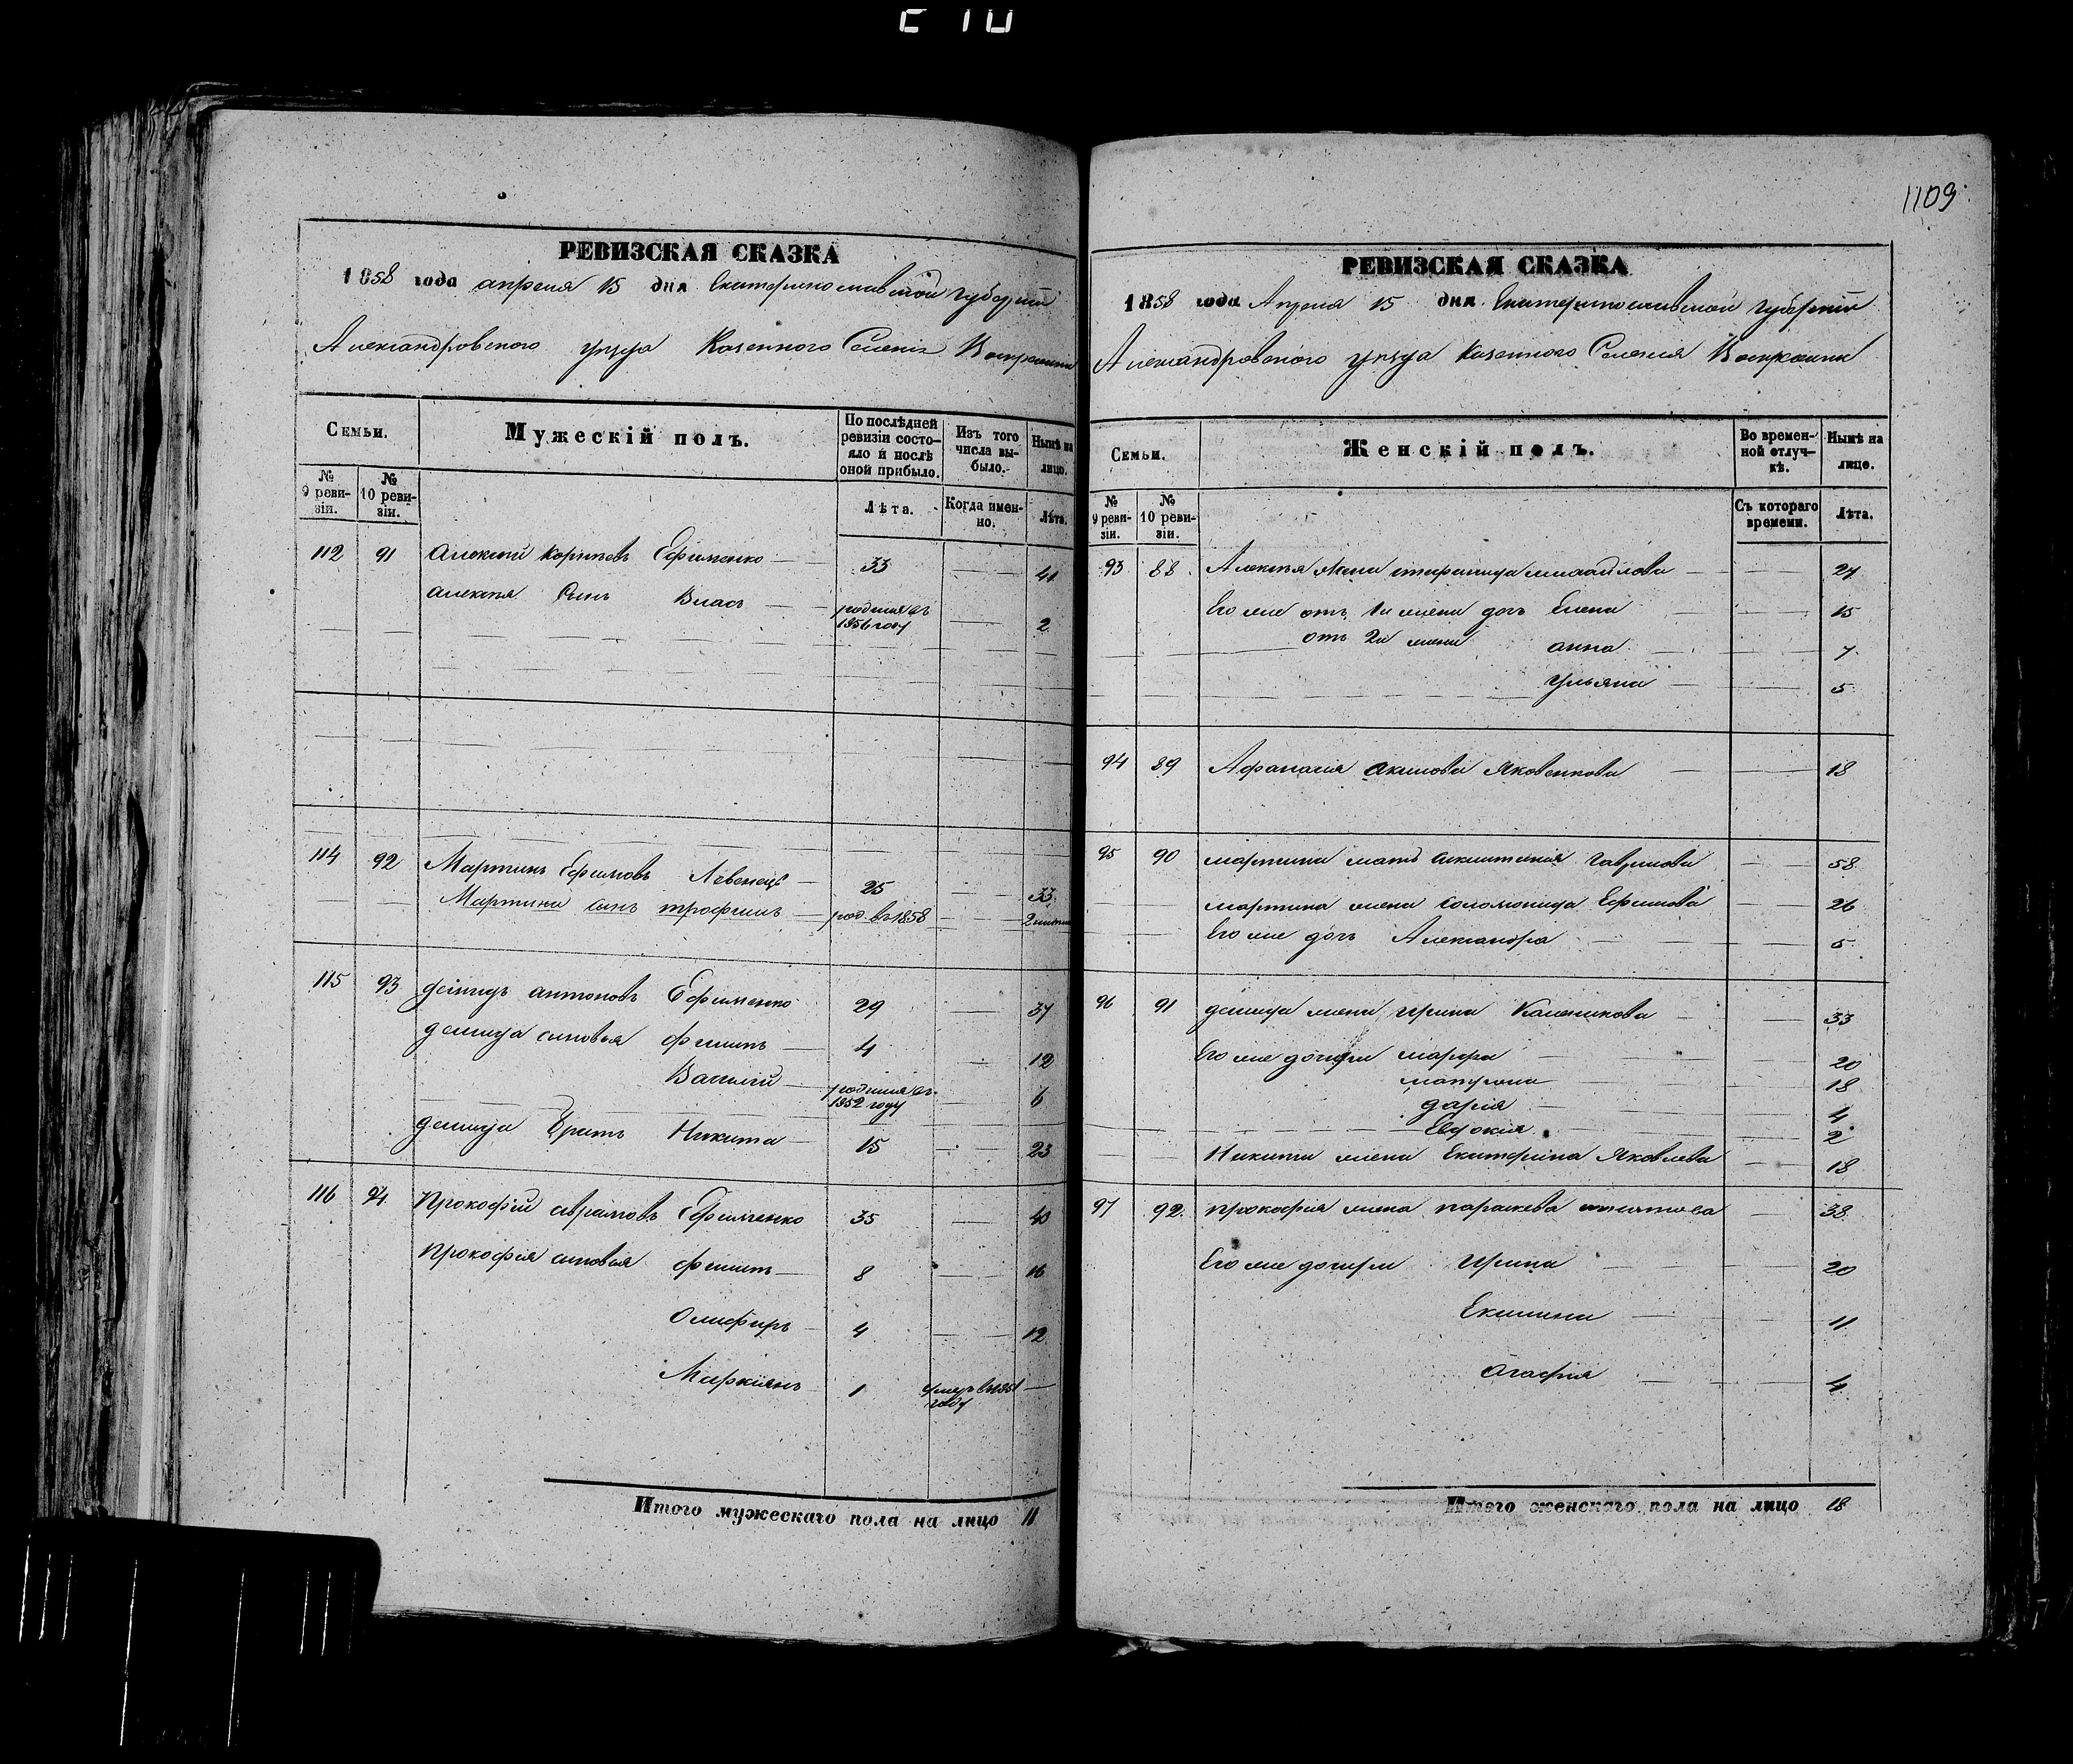 1109
РЕВИЗСКАЯ СКАЗКА
1858 года апреля 15 дня Екатеринославской губернии
Александровского уезда Казенного Селения Воскресенки
Семьи.
Мужескій полъ.
По послѣдней ревизіи состояло и послѣ оной прибыло.
Изъ того числа выбыло.
Нынѣ на лицо.
№ 9 ревизіи.
№ 10 ревизіи.
Лѣта.
Когда именно.
Лѣта.
112 91 Алексей Корнѣевъ Ефименко 33 41
Алексея Сынъ Власъ родился въ 1856 году 2
114 92 Мартинъ Ефимовъ Левенецъ 25 33
Мартина сынъ трофимъ род. въ 1858
115 93 Антоновъ Ефименко 29 37
демида сыновья филипъ 4 12
Василій родился въ 1852 году 6
демида Братъ Никита 15 23
116 94 Прокофій аврамовъ Ефименко 35 43
Прокофія сыновья филипъ 8 16
Олифиръ 4 12
Маркіянъ 1 умеръ въ 1851 году
Итого мужескаго пола на лицо 11
РЕВИЗСКАЯ СКАЗКА
1858 года Апреля 15 дня Екатеринославской губернии
Александровского уезда Казенного Селения Воскресенки
Семьи.
Женскій полъ.
Во временной отлучкѣ.
Нынѣ на лицо.
№ 9 ревизіи.
№ 10 ревизіи.
Съ котораго времени.
Лѣта.
93 88 Алексѣя жена михайлова 27
Его же отъ 1й жены дочь Елена 15
отъ 2й жены анна 7
Ульяна 5
94 89 Афанасия акимова Яковенкова 18
95 90 мартина мать гаврилова 58
мартина жена соломонида Ефимова 26
Его же дочь Александра 5
96 91 демида жена ирина 33
Его же дочери марфа 20
матрона 18
дария 4
Евдокия 2
Никиты жена Екатерина Яковлева 18
97 92 прокофия жена параскева 38
Его же дочери Ирина 20
Екилина 11
Агафия 4
Итого женскаго пола на лицо 18